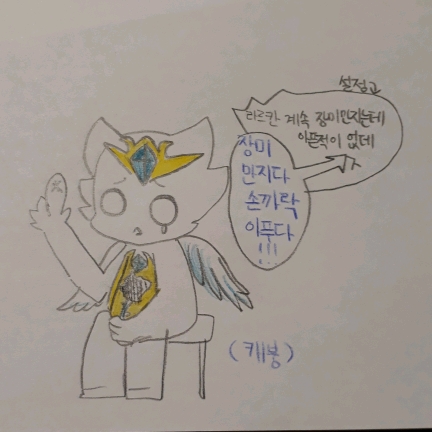 설정고
라르칸 계속 장미만지는데
아픈적이 없데
장미
만지다
손까락
이푸다
!!!
(캐붕)